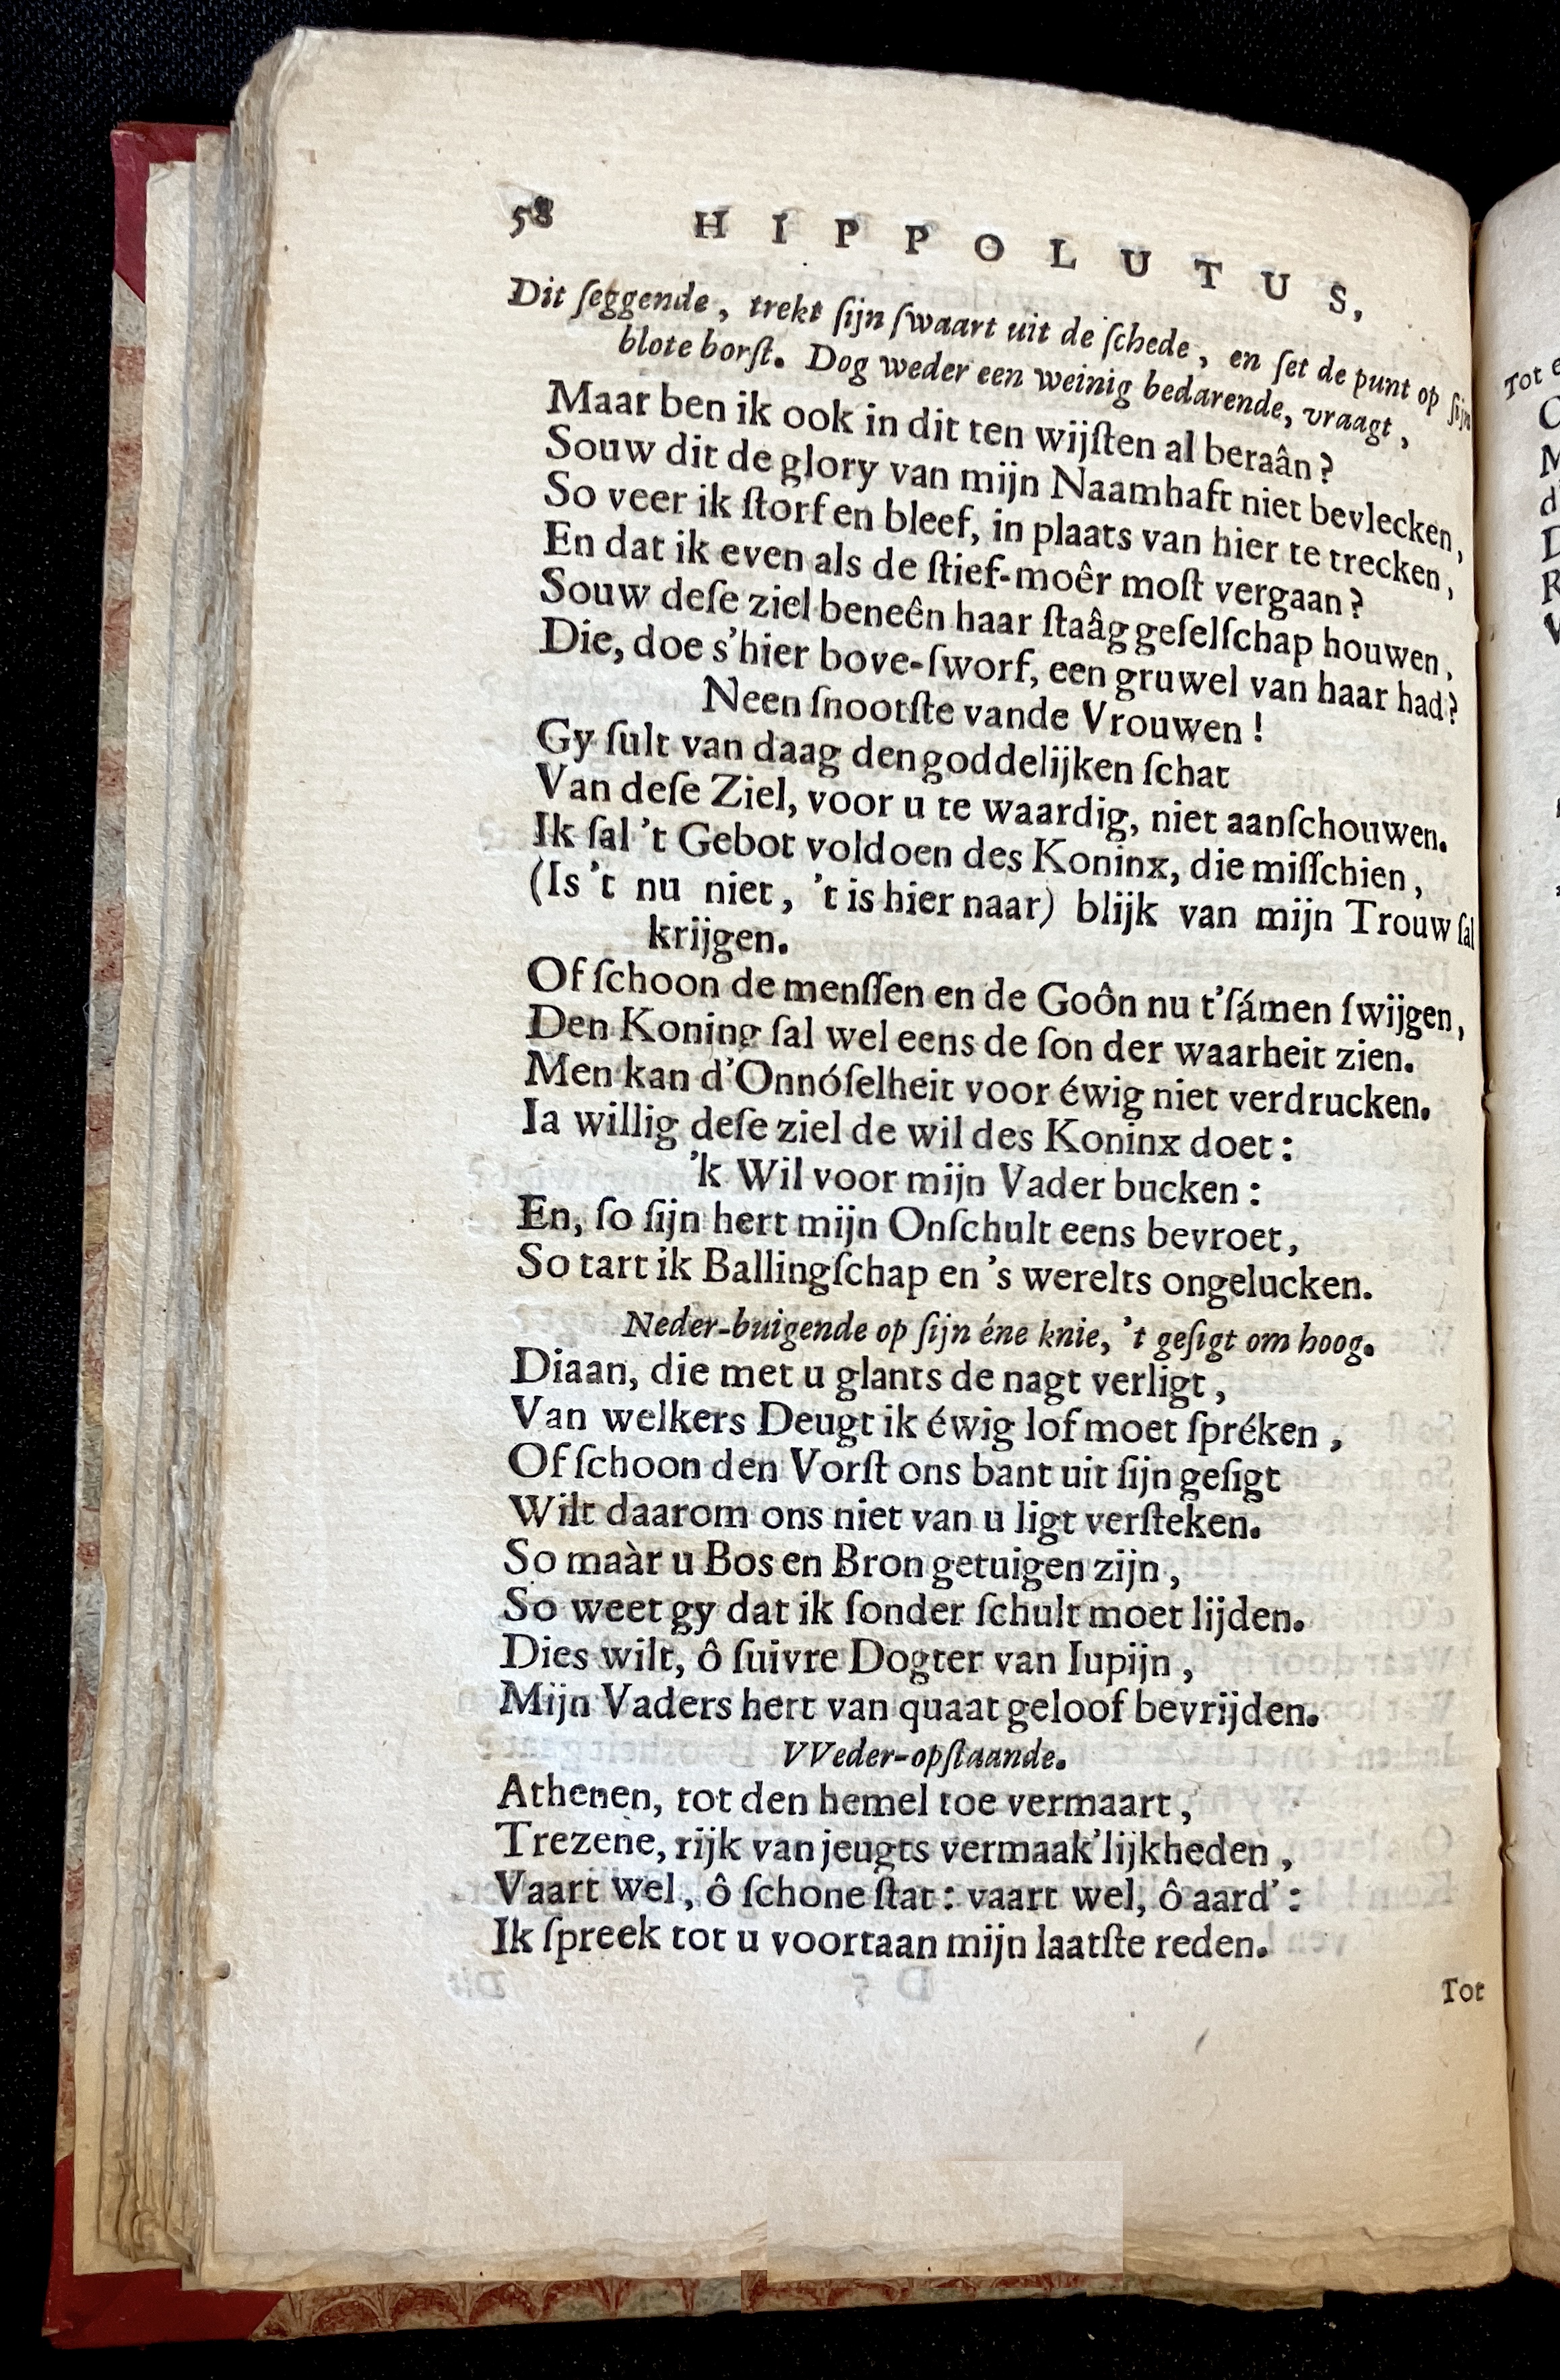 58 HIPPOLUTUS,
Dit ſeggende, trekt ſijn ſwaart uit de ſchede, en ſet de punt op ſijn
blote borſt. Dog weder een weinig bedarende, vraagt,
Maar ben ik ook in dit ten wijſten al beraân?
Souw dit de glory van mijn Naamhaft niet bevlecken,
So veer ik ſtorf en bleef, in plaats van hier te trecken,
En dat ik even als de ſtief-moêr moſt vergaan?
Souw deſe ziel beneên haar ſtaâg geſelſchap houwen,
Die, doe s'hier bove-ſworf, een gruwel van haar had?
Neen ſnootſte vande Vrouwen!
Gy ſult van daag den goddelijken ſchat
Van deſe Ziel, voor u te waardig, niet aanſchouwen.
Ik ſal 't Gebot voldoen des Koninx, die miſſchien,
(Is 't nu niet, 't is hier naar) blijk van mijn Trouw ſal
krijgen.
Of ſchoon de menſſen en de Goôn nu t'ſámen ſwijgen,
Den Koning ſal wel eens de ſon der waarheit zien.
Men kan d'Onnóſelheit voor éwig niet verdrucken.
Ia willig deſe ziel de wil des Koninx doet:
'k Wil voor mijn Vader bucken:
En, ſo ſijn hert mijn Onſchult eens bevroet,
So tart ik Ballingſchap en 's werelts ongelucken.
Neder-buigende op ſijn éne knie, 't geſigt om hoog.
Diaan, die met u glants de nagt verligt,
Van welkers Deugt ik éwig lof moet ſpréken,
Of ſchoon den Vorſt ons bant uit ſijn geſigt
Wilt daarom ons niet van u ligt verſteken.
So maàr u Bos en Bron getuigen zijn,
So weet gy dat ik ſonder ſchult moet lijden.
Dies wilt, ô ſuivre Dogter van Iupijn,
Mijn Vaders hert van quaat geloof bevrijden.
VVeder-opſtaande.
Athenen, tot den hemel toe vermaart,
Trezene, rijk van jeugts vermaak'lijkheden,
Vaart wel, ô ſchone ſtat: vaart wel, ô aard':
Ik ſpreek tot u voortaan mijn laatſte reden.
Tot